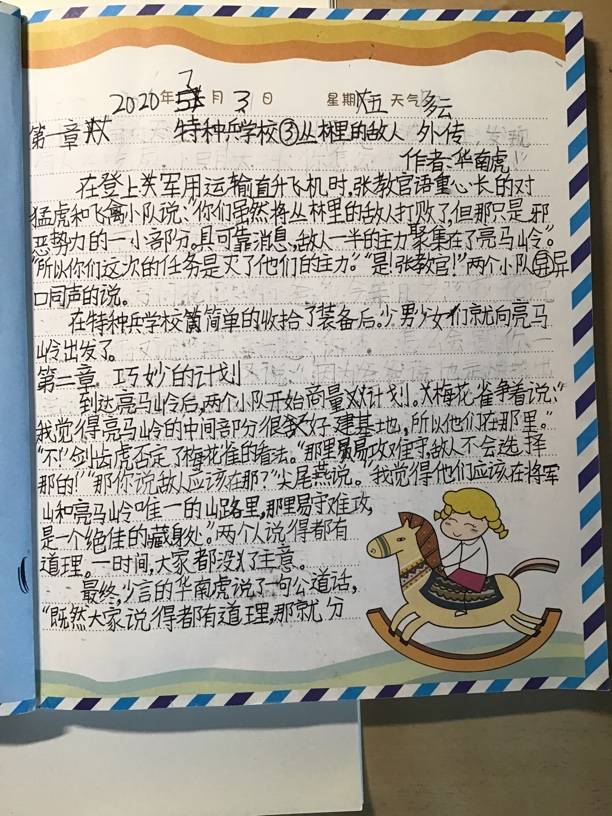 2020年 3月 3日 星期五 天气 多云
第一章 特种兵学校③丛林里的敌人 外传
作者:华南虎
在登上军用运输直升飞机时,张教官语重心长的对
猛虎和飞禽小队说:“你们虽然将丛林里的敌人打败了,但那只是邪
恶势力的一小部分。具可靠消息,敌人一半的主力聚集在了亮马岭。”
“所以你们这次的任务是灭了他们的主力。”“是!张教官!”两个小队异
口同声的说。
在特种兵学校简单的收拾了装备后。少男少女们就向亮马
岭出发了。
第二章 巧妙的计划
到达亮马岭后,两个小队开始商量计划。梅花雀争着说:“
我觉得亮马岭的中间部分很好建基地,所以他们在那里。”
“不!”剑齿虎否定了梅花雀的看法。“那里易攻难守,敌人不会选择
那的!”“那你说敌人应该在那?”尖尾燕说。“我觉得他们应该在将军
山和亮马岭唯一的山路里,那里易守难攻,
是一个绝佳的藏身处。”两个人说得都有
道理。一时间,大家都没了主意。
最终,少言的华南虎说了一句公道话,
“既然大家说得都有道理,那就分